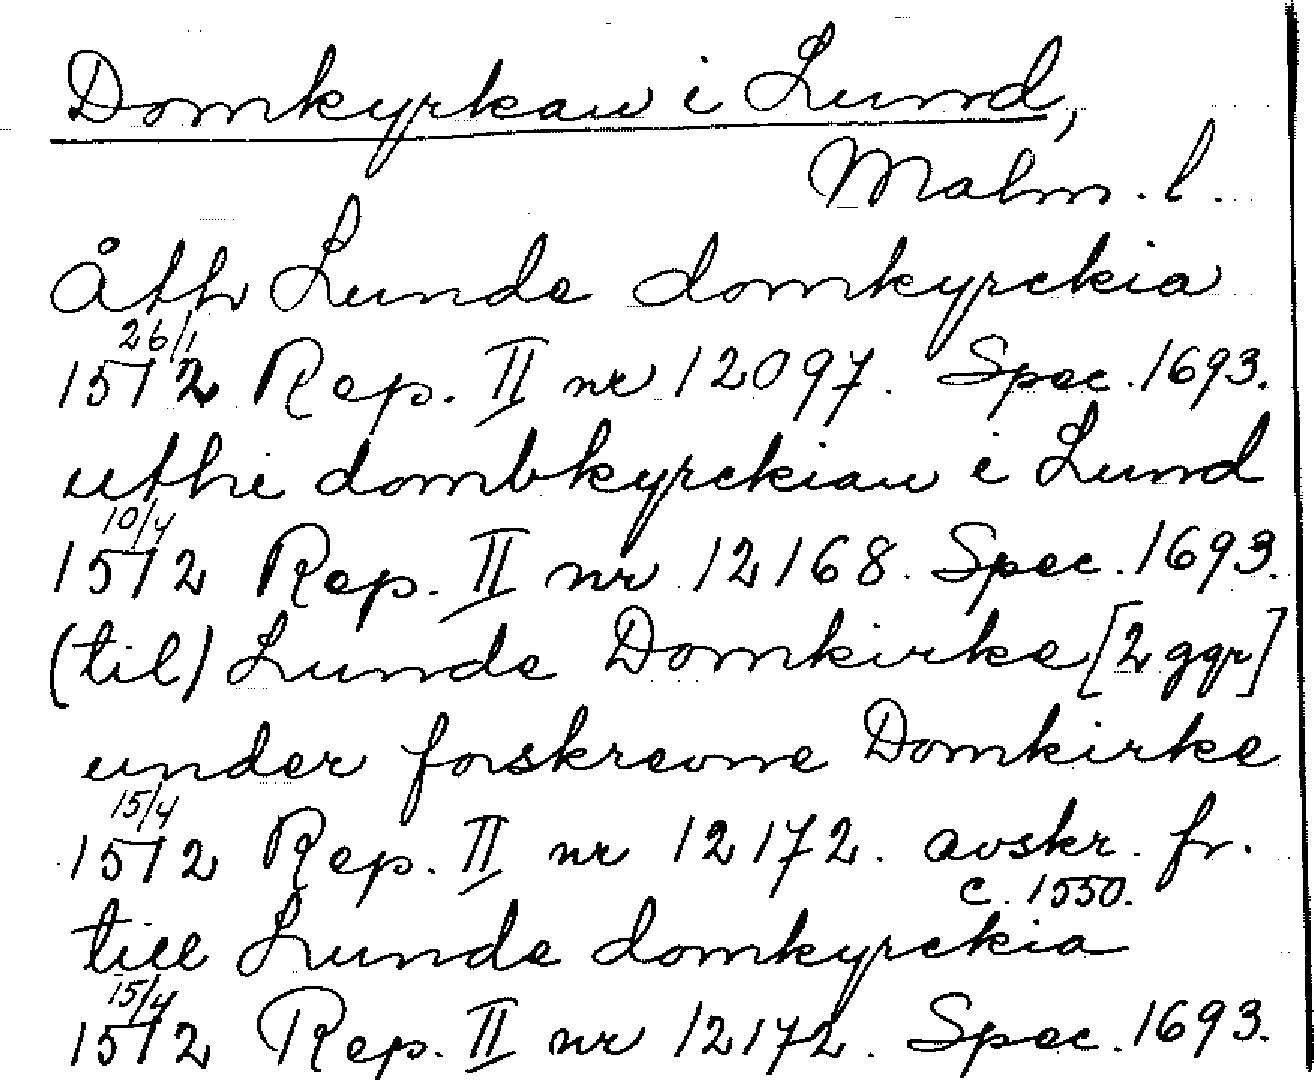 Domkyrkan i Lund,
Malm. l.
Åth Lunde domkyrckia
26/1
1512 Rep. II nr 12097. Spec. 1693.
uthi dombkyrckian i Lund
10/4
1512 Rep. II nr 12168. Spec. 1693.
(til) Lunde Domkirke [2 ggr]
under forskrevne Domkirke
15/4
1512 Rep. II nr 12172. avskr. fr.
c. 1550.
till Lunde domkyrckia
15/4
1512 Rep. II nr 12172. Spec. 1693.